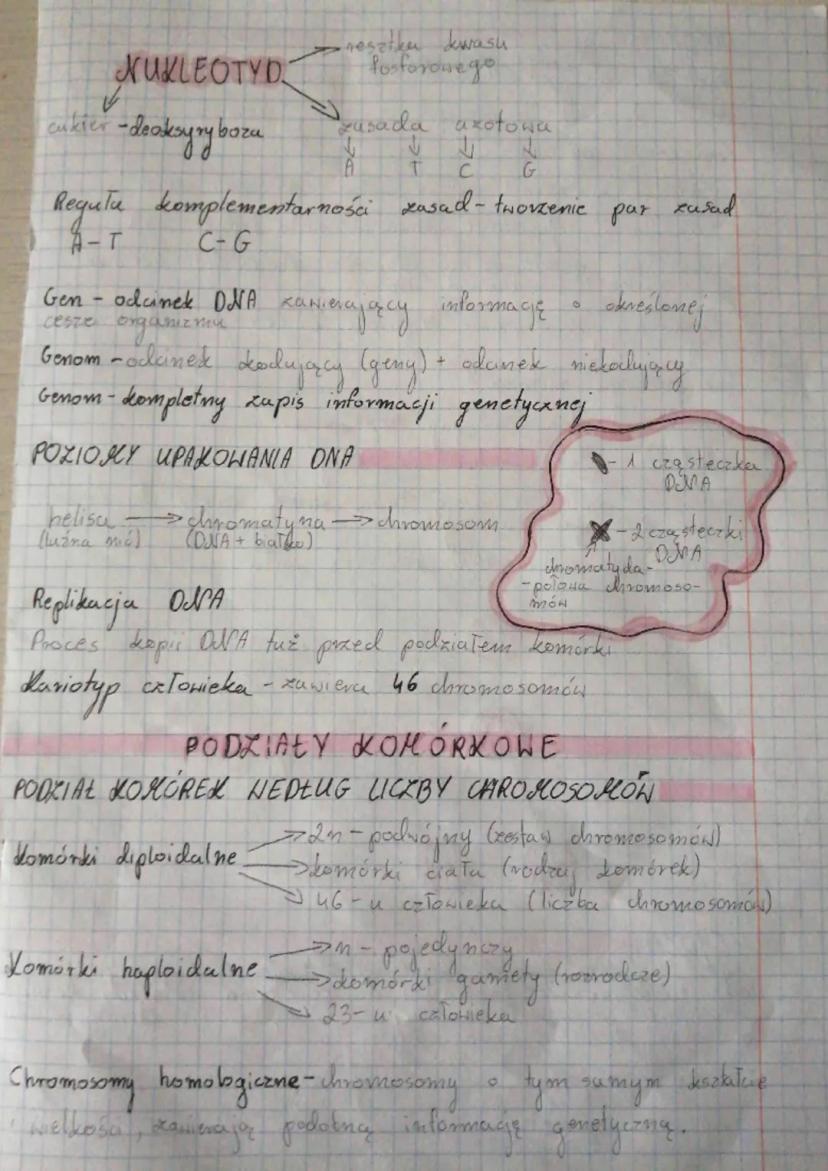 resztka kwasu
fosforowego
NUKLEOTYD
cukier - deoksyryboza
zasada azotowa
A T C G
Reguła komplementarności zasad - tworzenie par zasad
A-T C-G
Gen - odcinek DNA zawierający informację o określonej
cesze organizmu
Genom - odcinek kodujący (geny) + odcinek niekodujący
Genom - kompletny zapis informacji genetycznej
POZIOMY UPAKOWANIA DNA
helisa → chromatyna → chromosom
(luźna nić) (DNA + białko)
- 1 cząsteczka
DNA
- 2 cząsteczki
DNA
chromatyda-
- połowa chromoso-
mów
Replikacja DNA
Proces kopii DNA tuż przed podziałem komórki
Kariotyp człowieka - zawiera 46 chromosomów
PODZIAŁY KOMÓRKOWE
PODZIAŁ KOMÓREK WEDŁUG LICZBY CHROMOSOMÓW
Komórki diploidalne
→ 2n - podwójny (zestaw chromosomów)
→ komórki ciała (rodzaj komórek)
→ 46 - u człowieka (liczba chromosomów)
Komórki haploidalne
→ n - pojedynczy
→ komórki gamety (rozrodcze)
→ 23 - u człowieka
Chromosomy homologiczne - chromosomy o tym samym kształcie
i wielkości, zawierają podobną informację genetyczną.